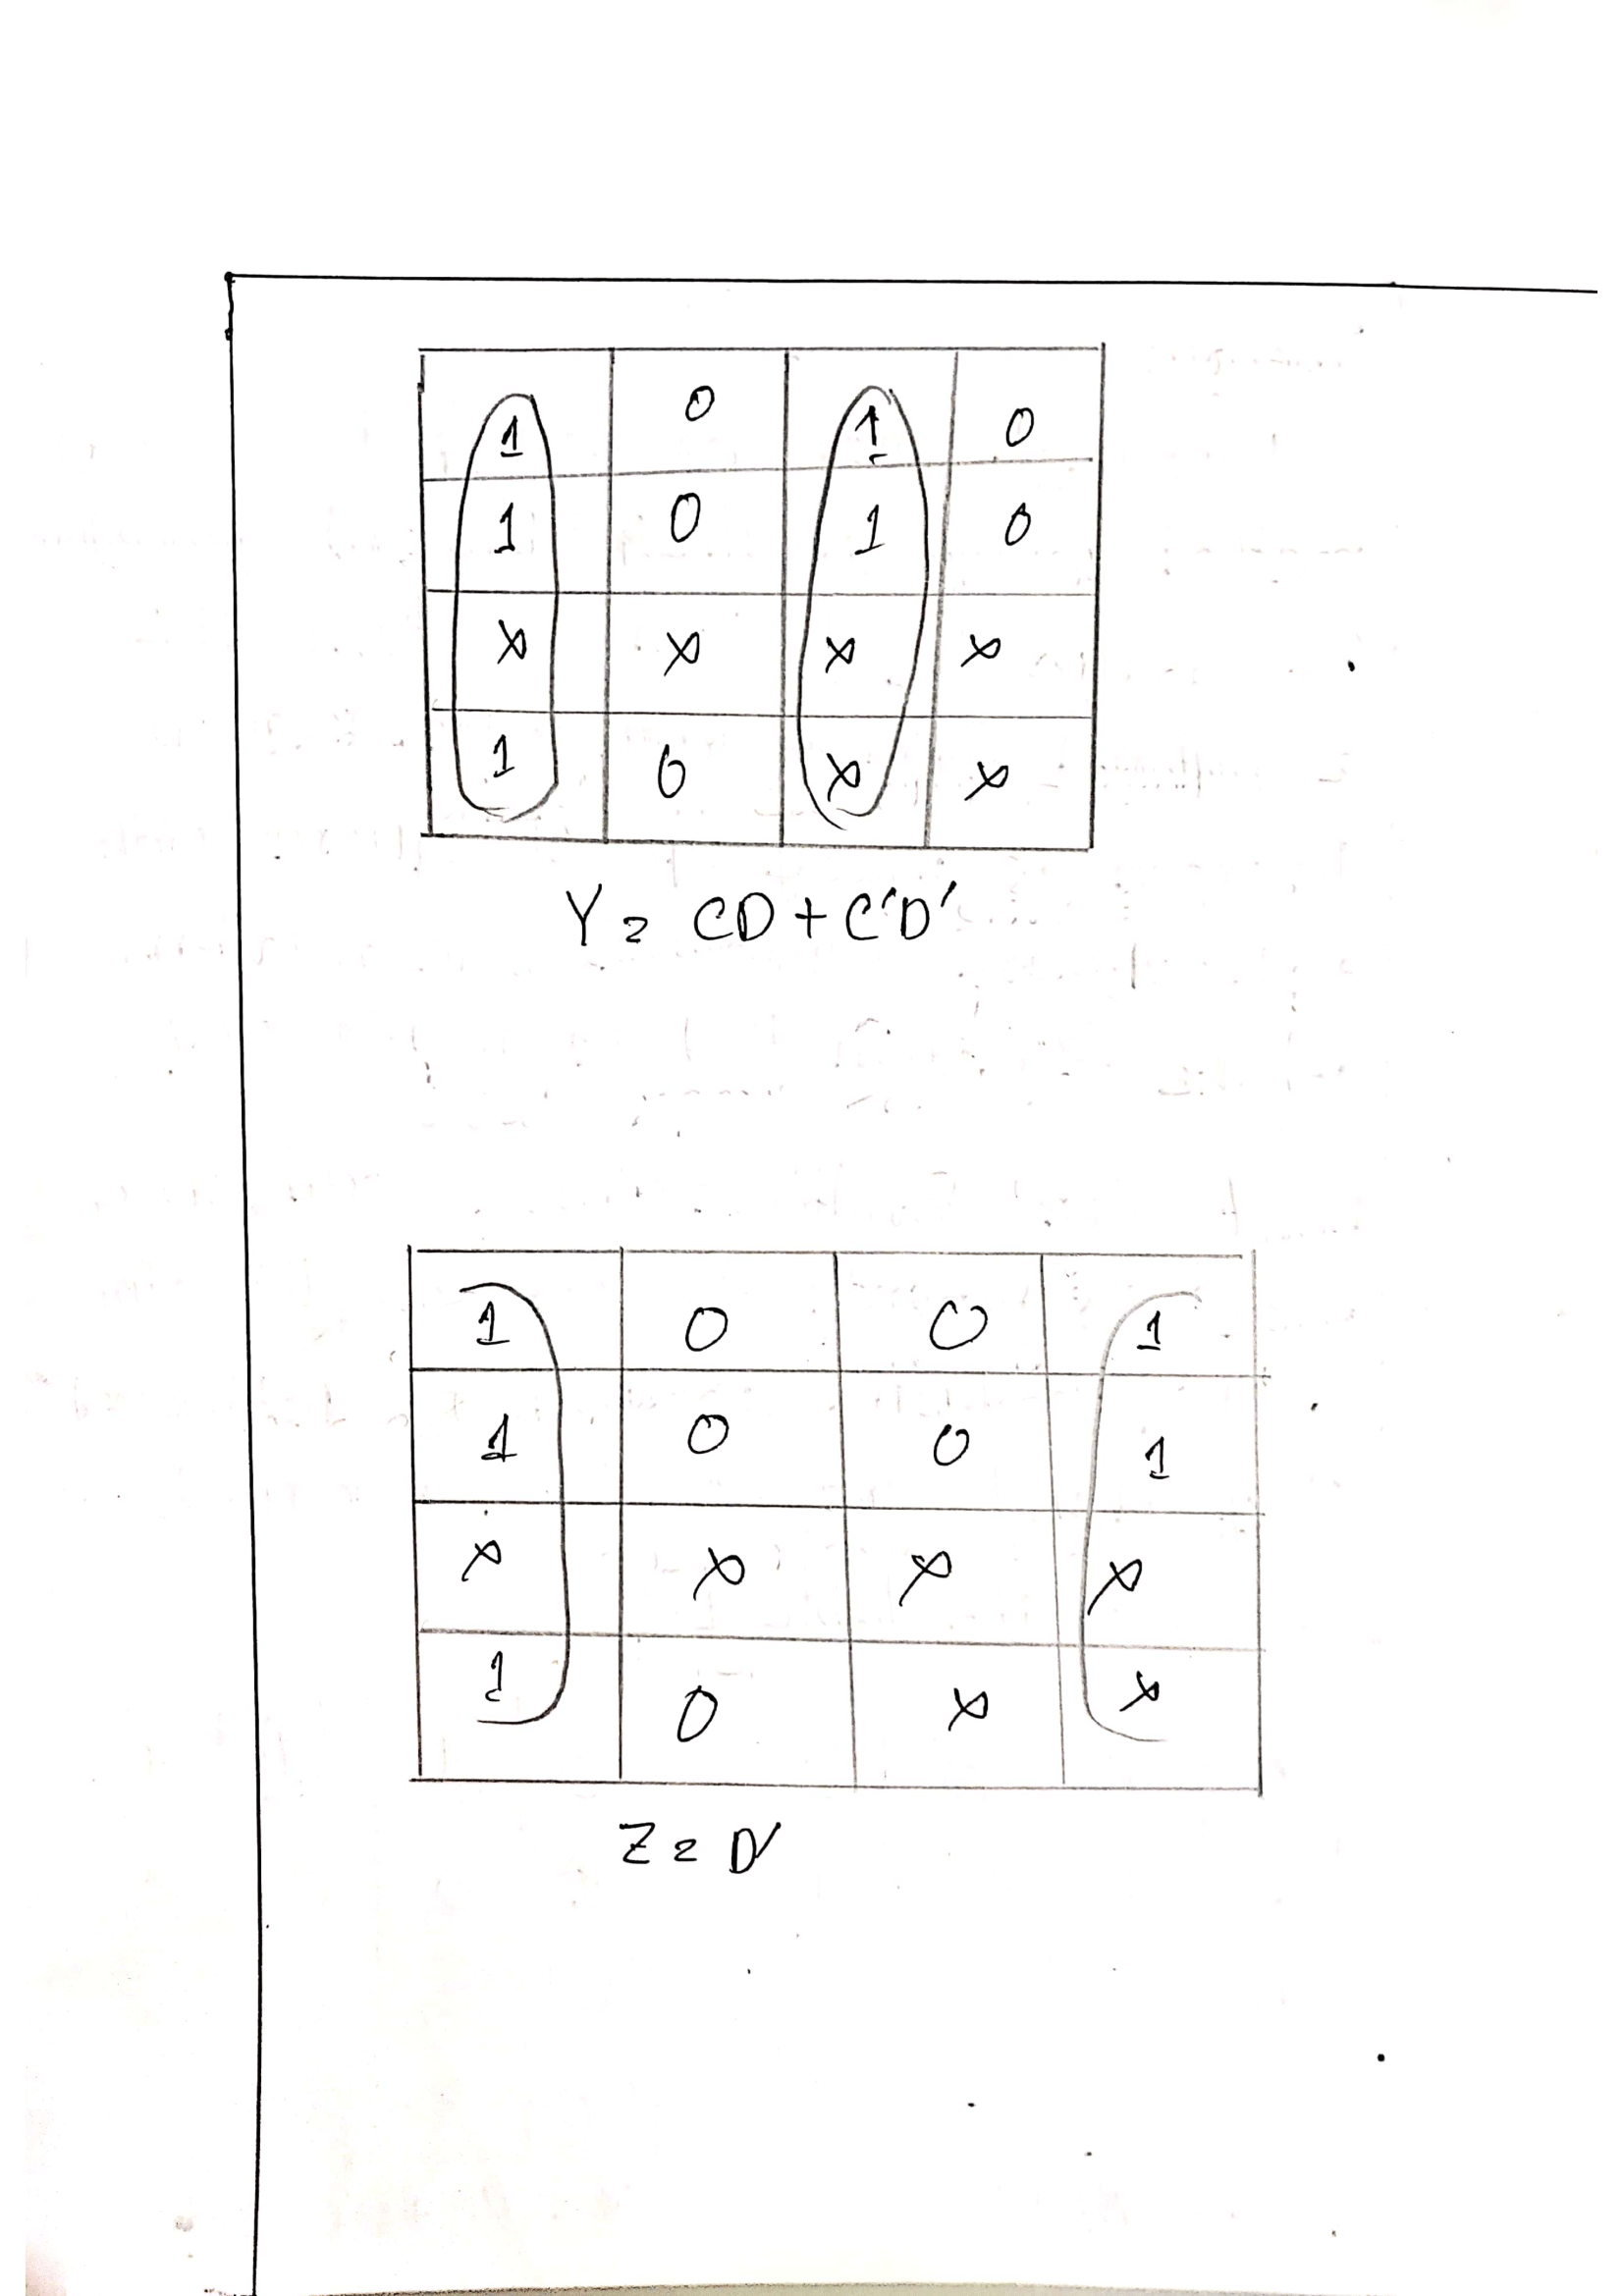 1 0 1 0
1 0 1 0
x x x x
1 0 x x
Y = CD + C'D'
1 0 0 1
1 0 0 1
x x x x
1 0 x x
Z = D'